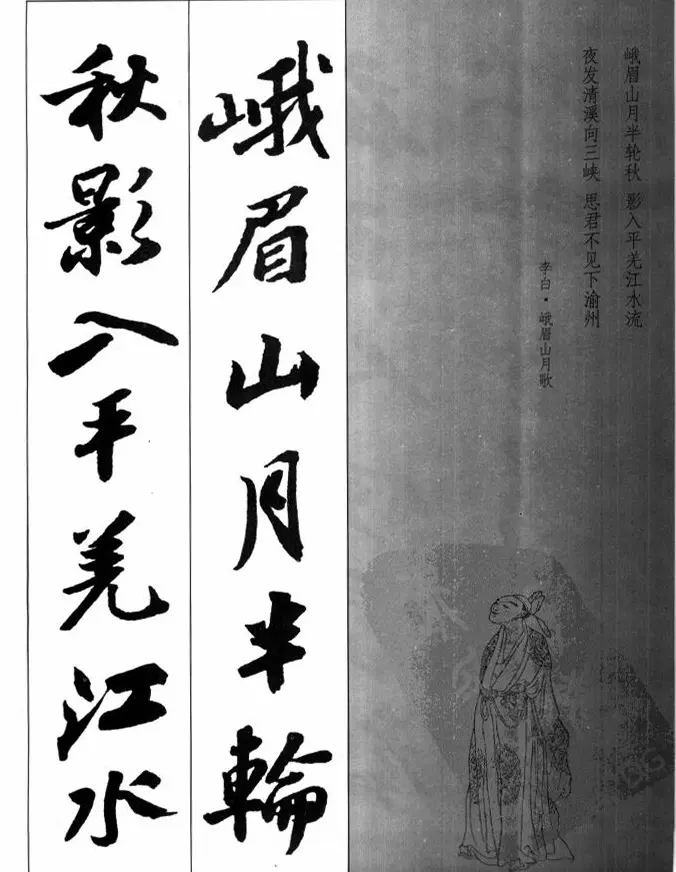 峨眉山月半轮秋 影入平羌江水流
夜发清溪向三峡 思君不见下渝州
李白·峨眉山月歌
峨眉山月半輪
秋影入平羌江水